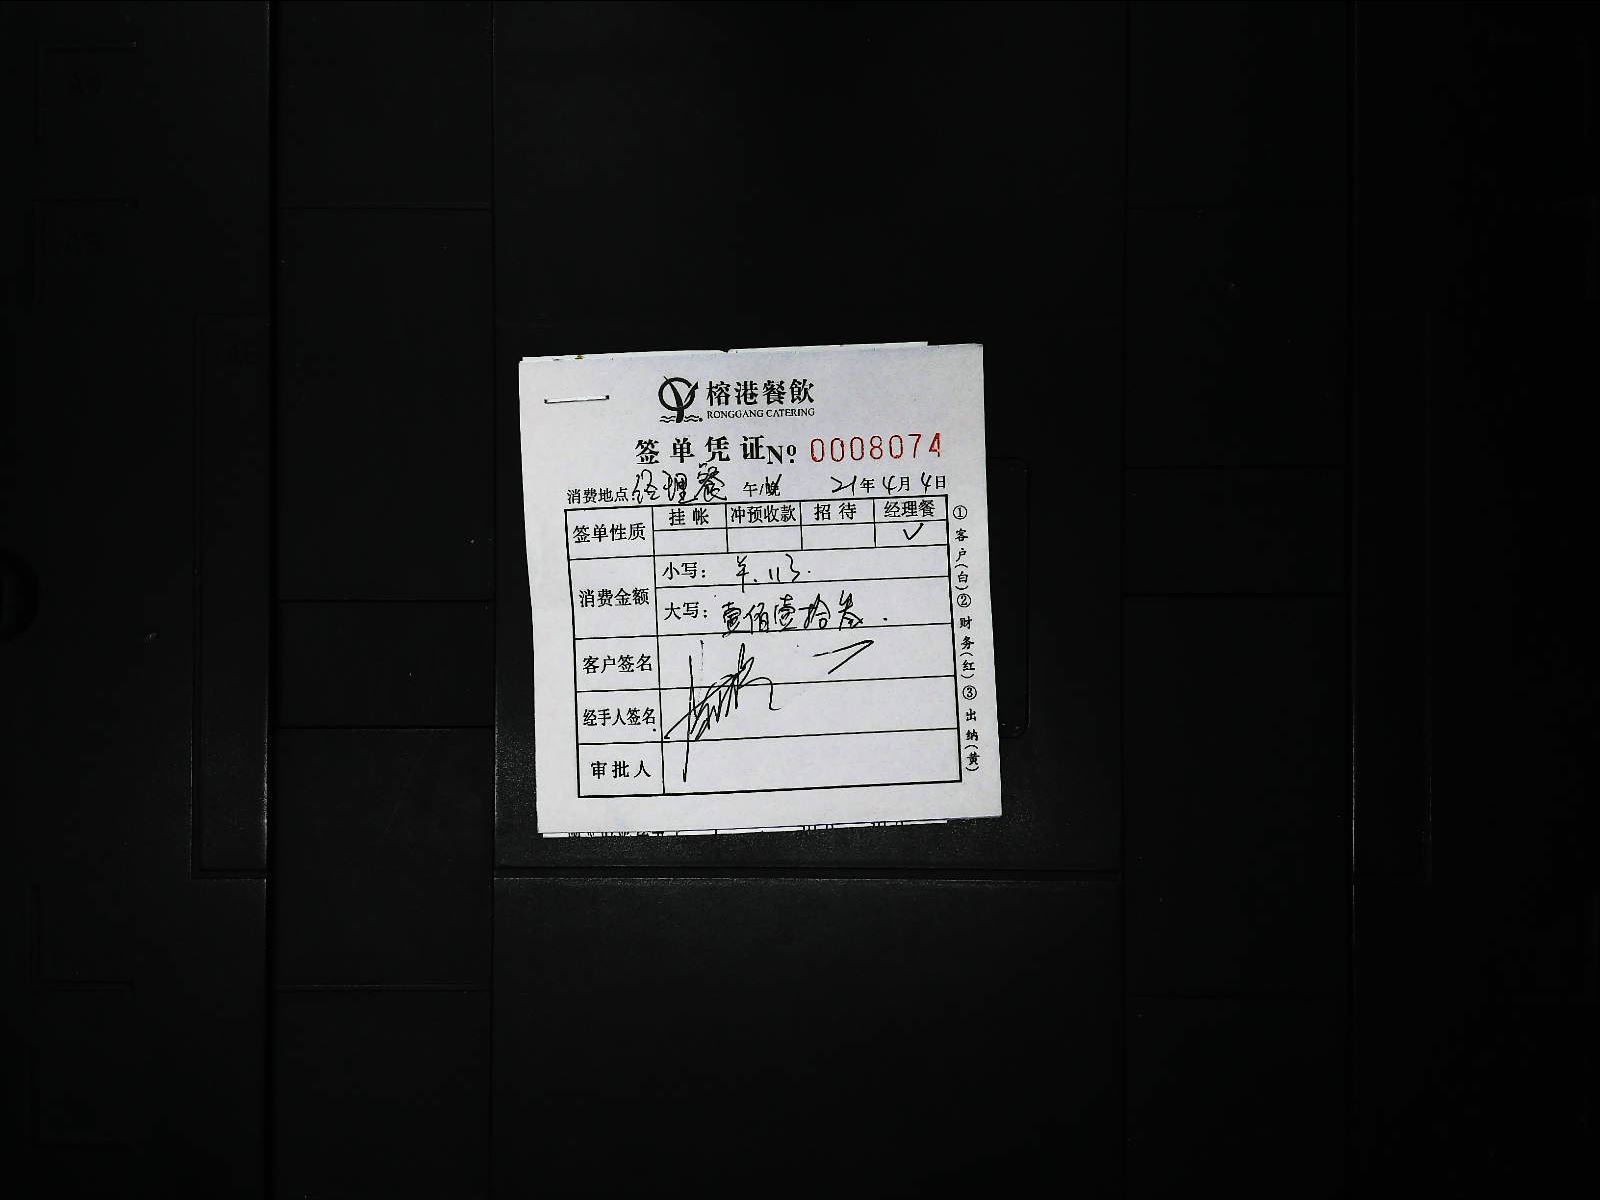 榕港餐飲
RONGGANG CATERING
签单凭证 Nº 0008074
消费地点:经理餐 午/晚 21年4月4日
签单性质 挂帐 冲预收款 招待 经理餐
✓
消费金额 小写: 羊.113.
大写: 壹佰壹拾叁.
客户签名
经手人签名
审批人
①客户(白)②财务(红)③出纳(黄)